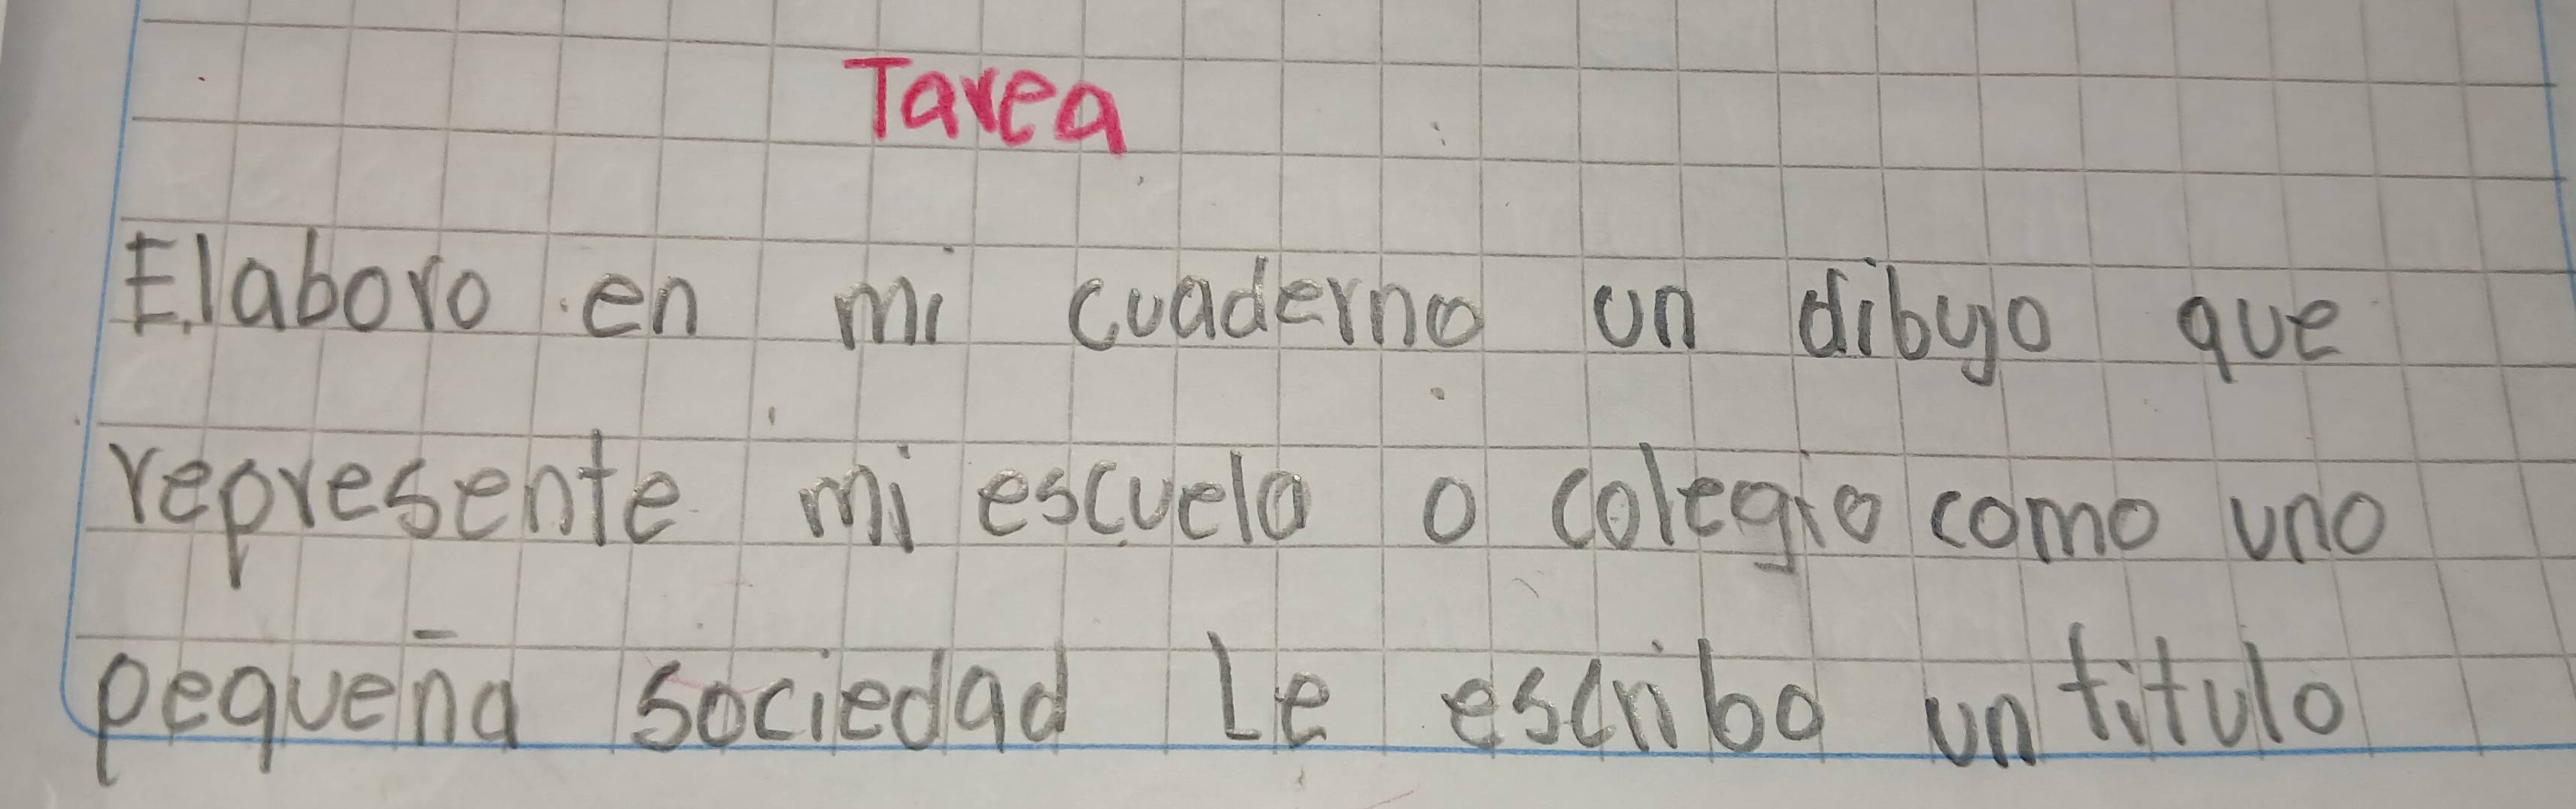 Tarea
Elaboro en mi cuaderno un dibujo que
represente mi escuela o colegio como uno
pequeña sociedad Le escribo un titulo